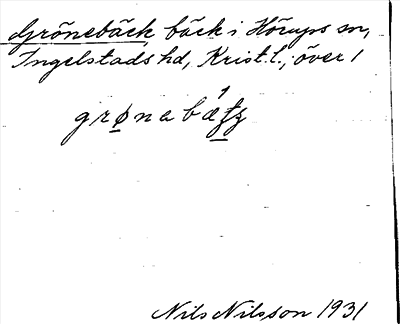 Grönebäck, bäck i Hörups sn,
Ingelstads hd, Krist. l., över 1
Nils Nilsson 1931